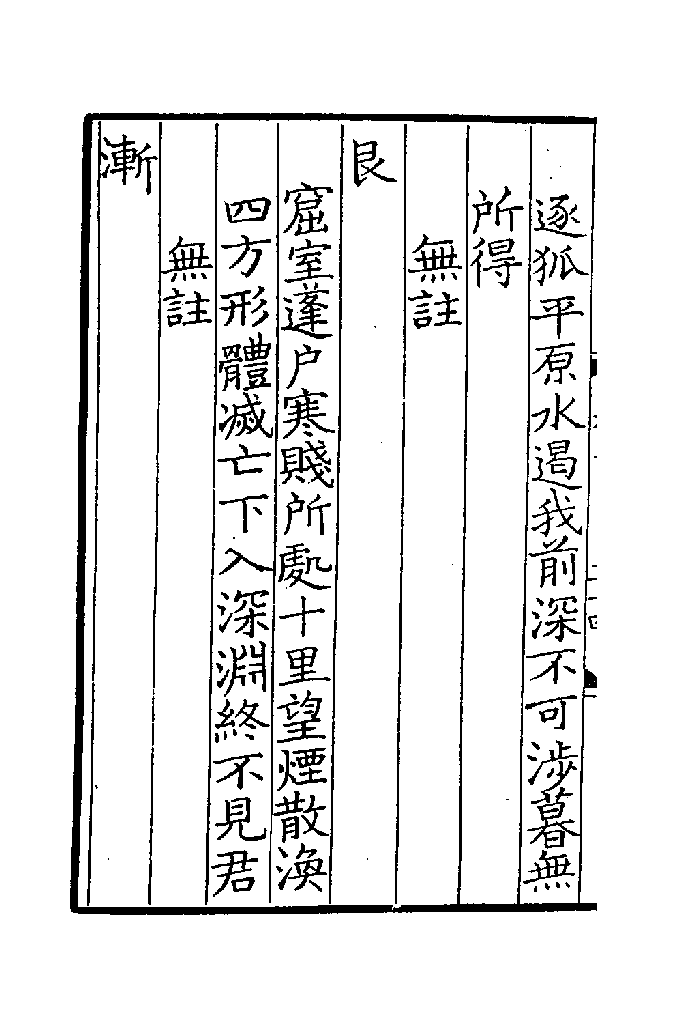 逐狐平原水遏我前深不可渉暮無
所得
無註
艮
窟室蓬户寒賤所處十里望煙散渙
四方形體滅亡下入深淵終不見君
無註
漸